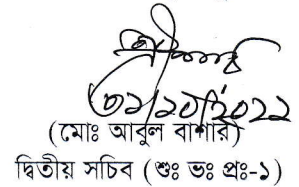 ৩১/১০/২০২২
(মোঃ আবুল বাশার)
দ্বিতীয় সচিব (শুঃ ভঃ প্রঃ-১)